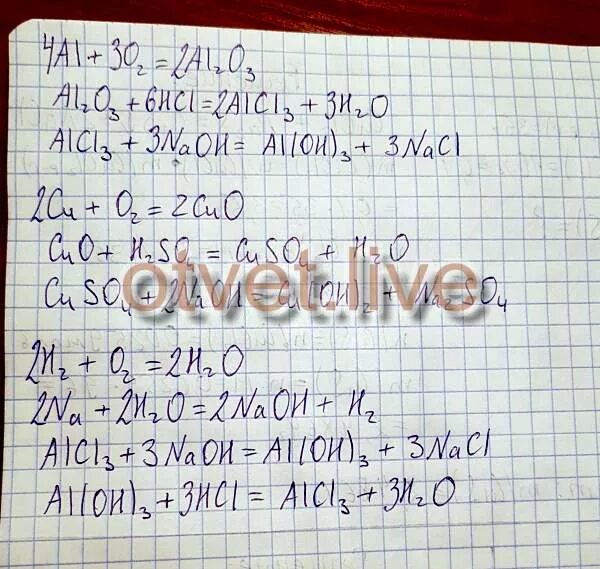 4Al + 3O₂ = 2Al₂O₃
Al₂O₃ + 6HCl = 2AlCl₃ + 3H₂O
AlCl₃ + 3NaOH = Al(OH)₃ + 3NaCl
2Cu + O₂ = 2CuO
CuO + H₂SO₄ = CuSO₄ + H₂O
otvet.live
CuSO₄ + 2NaOH = Cu(OH)₂ + Na₂SO₄
2H₂ + O₂ = 2H₂O
2Na + 2H₂O = 2NaOH + H₂
AlCl₃ + 3NaOH = Al(OH)₃ + 3NaCl
Al(OH)₃ + 3HCl = AlCl₃ + 3H₂O